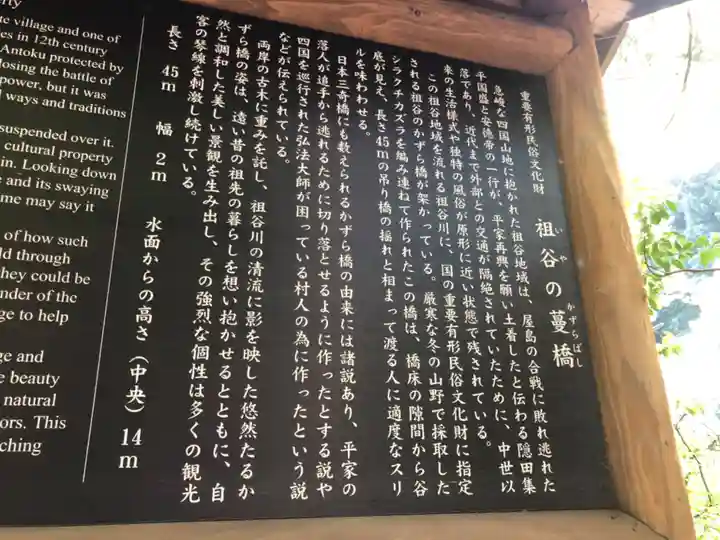 重要有形民俗文化財
祖谷の蔓橋
いや
かずらばし
急峻な四国山地に抱かれた祖谷地域は、屋島の合戦に敗れ逃れた
平国盛と安徳帝の一行が、平家再興を願い土着したと伝わる隠田集
落であり、近代まで外部との交通が隔絶されていたために、中世以
来の生活様式や独特の風俗が原形に近い状態で残されている。
この祖谷地域を流れる祖谷川に、国の重要有形民俗文化財に指定
される祖谷のかずら橋が架かっている。厳寒な冬の山野で採取した
シラクチカズラを編み連ねて作られたこの橋は、橋床の隙間から谷
底が見え、長さ45mの吊り橋の揺れと相まって渡る人に適度なスリ
ルを味わわせる。
日本三奇橋にも数えられるかずら橋の由来には諸説あり、平家の
落人が追手から逃れるために切り落とせるように作ったとする説や
四国を巡行された弘法大師が困っている村人の為に作ったという説
などが伝えられている。
両岸の古木に重みを託し、祖谷川の清流に影を映した悠然たるか
ずら橋の姿は、遠い昔の祖先の暮らしを想い抱かせるとともに、自
然と調和した美しい景観を生み出し、その強烈な個性は多くの観光
客の琴線を刺激し続けている。
長さ 45m 幅 2m 水面からの高さ(中央)14m
te village and one of
es in 12th century
Antoku protected by
losing the battle of
power, but it was
l ways and traditions
suspended over it.
cultural property
in. Looking down
e and its swaying
me may say it
of how such
ld through
they could be
nder of the
ge to help
ge and
e beauty
natural
ors. This
ching